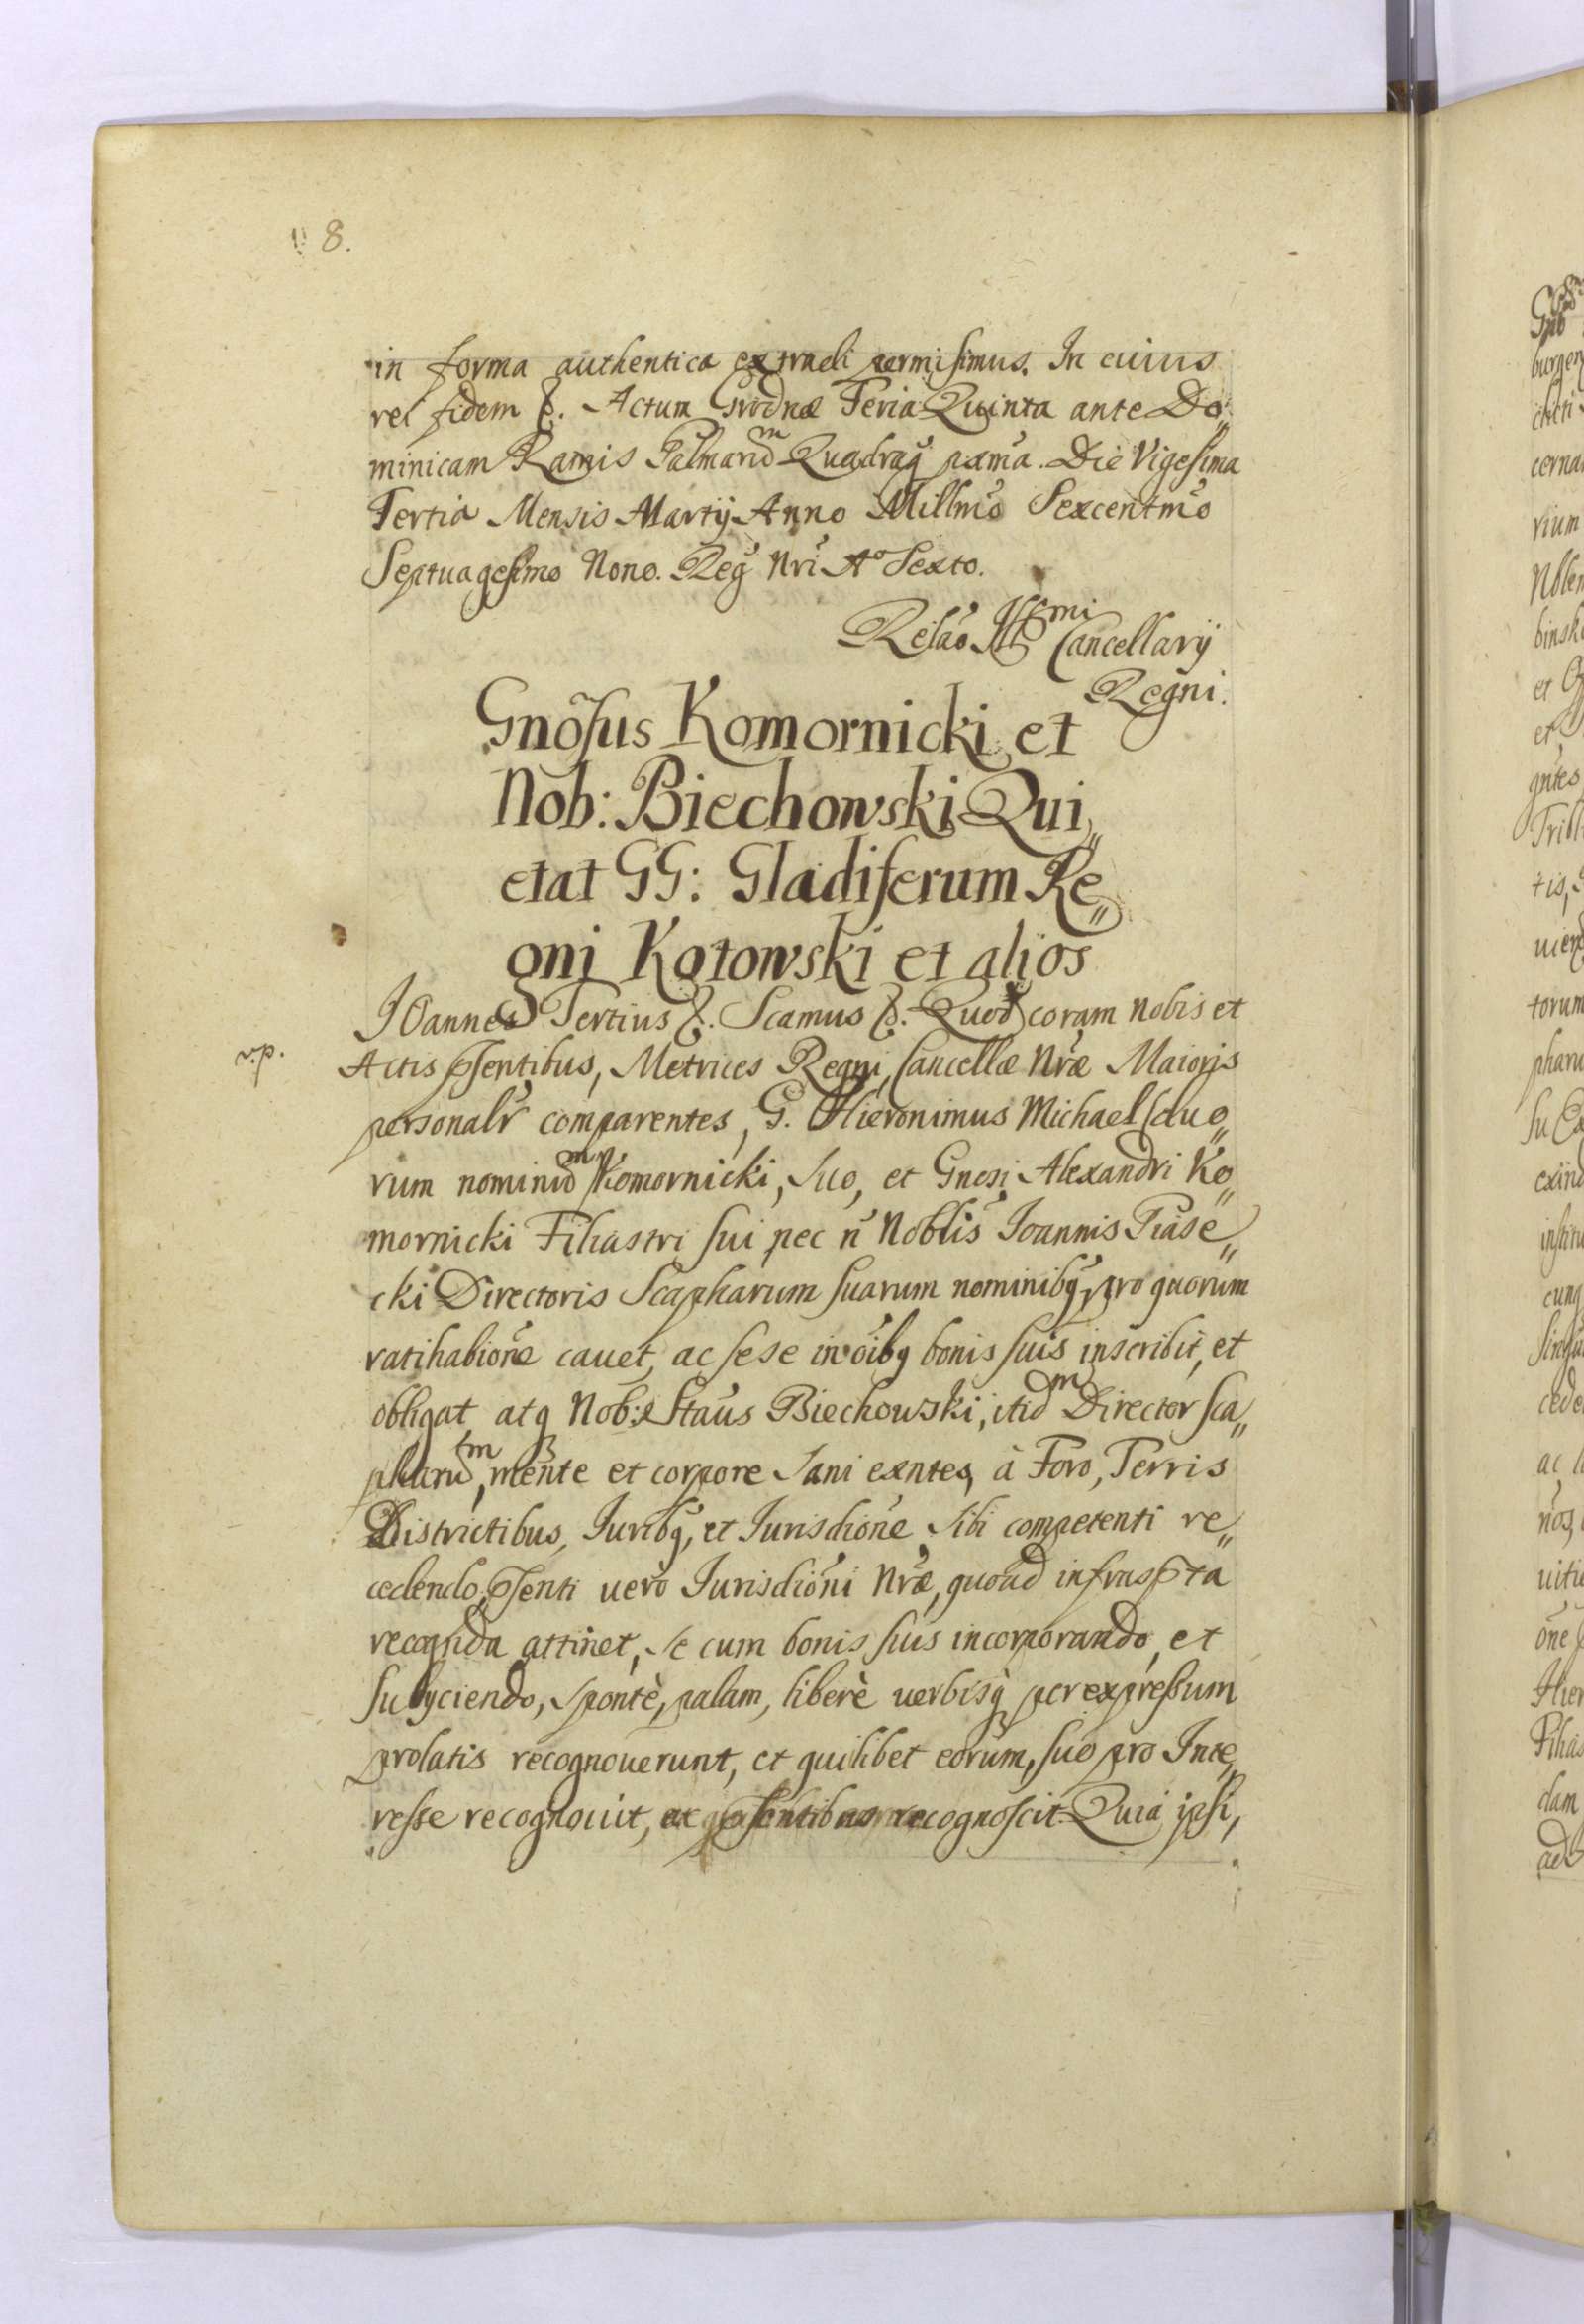 8.
in forma authentica extradi permisimus. In cuius
rei fidem &. Actum Grodnæ Feria Quinta ante Do„
minicam Ramis Palmarum Quadrag pxma. Die Vigesima
Tertia Mensis Martij Anno Millmo Sexcentmo
Septuagesimo Nono. Reg Nri Ao Sexto.
Relao Illmi Cancellarij
Regni.
Gnosus Komornicki et
Nob: Biechowski Qui„
etat GG: Gladiferum Re„
gni Kotowski et alios
JOannes Tertius &. Scamus &. Quod coram Nobis et
v.p.
Actis psentibus, Metrices Regni, Cancellæ Nræ Maioris
personalr comparentes, G. Hieronimus Michael duo„
rum nominum Komornicki, suo, et Gnosi Alexandri Ko„
mornicki Filiastri sui nec n Noblis Joannis Piase„
cki Directoris Scapharum suarum nominibq, pro quorum
ratihabione cauet, ac sese in oibq bonis suis inscribit, et
obligat atq Nob: Staus Biechowski, itidm Director sca„
pharum, mente et corpore sani exntes, à Foro, Terris
Districtibus, Juribq, et Jurisdione sibi competenti re„
cedendo, psenti uero Jurisdioni Nræ, quoad infraspta
recognda attinet, se cum bonis suis incorporando, et
subyciendo, spontè, palam, liberè uerbisq per expressum
prolatis recognouerunt, et quilibet eorum, suo pro Inte„
resse recognouit, ac psentibus recognoscit Quia ipsi,